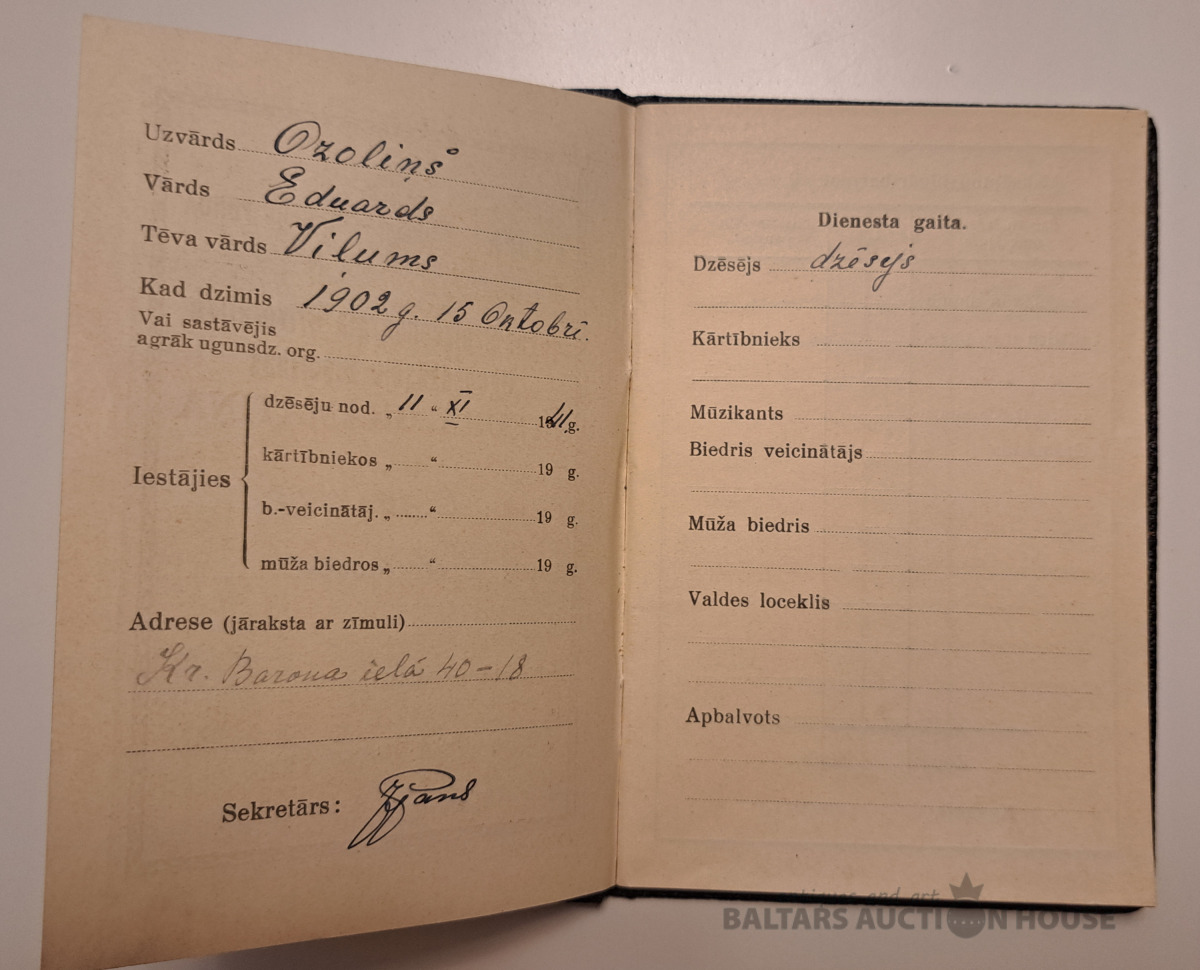 Uzvārds Ozoliņš
Vārds Eduards
Tēva vārds Viļums
Kad dzimis 1902 g. 15 Oktobrī.
Vai sastāvējis
agrāk ugunsdz. org.
Iestājies
dzēsēju nod. „ 11 “ XI 1941 g.
kārtībniekos „ “ 19 g.
b.-veicinātāj. „ “ 19 g.
mūža biedros „ “ 19 g.
Adrese (jāraksta ar zīmuli)
Kr. Barona ielā 40-18
Sekretārs:
Dienesta gaita.
Dzēsējs dzēsejs
Kārtībnieks
Mūzikants
Biedris veicinātājs
Mūža biedris
Valdes loceklis
Apbalvots
antiques and art
BALTARS AUCTION HOUSE